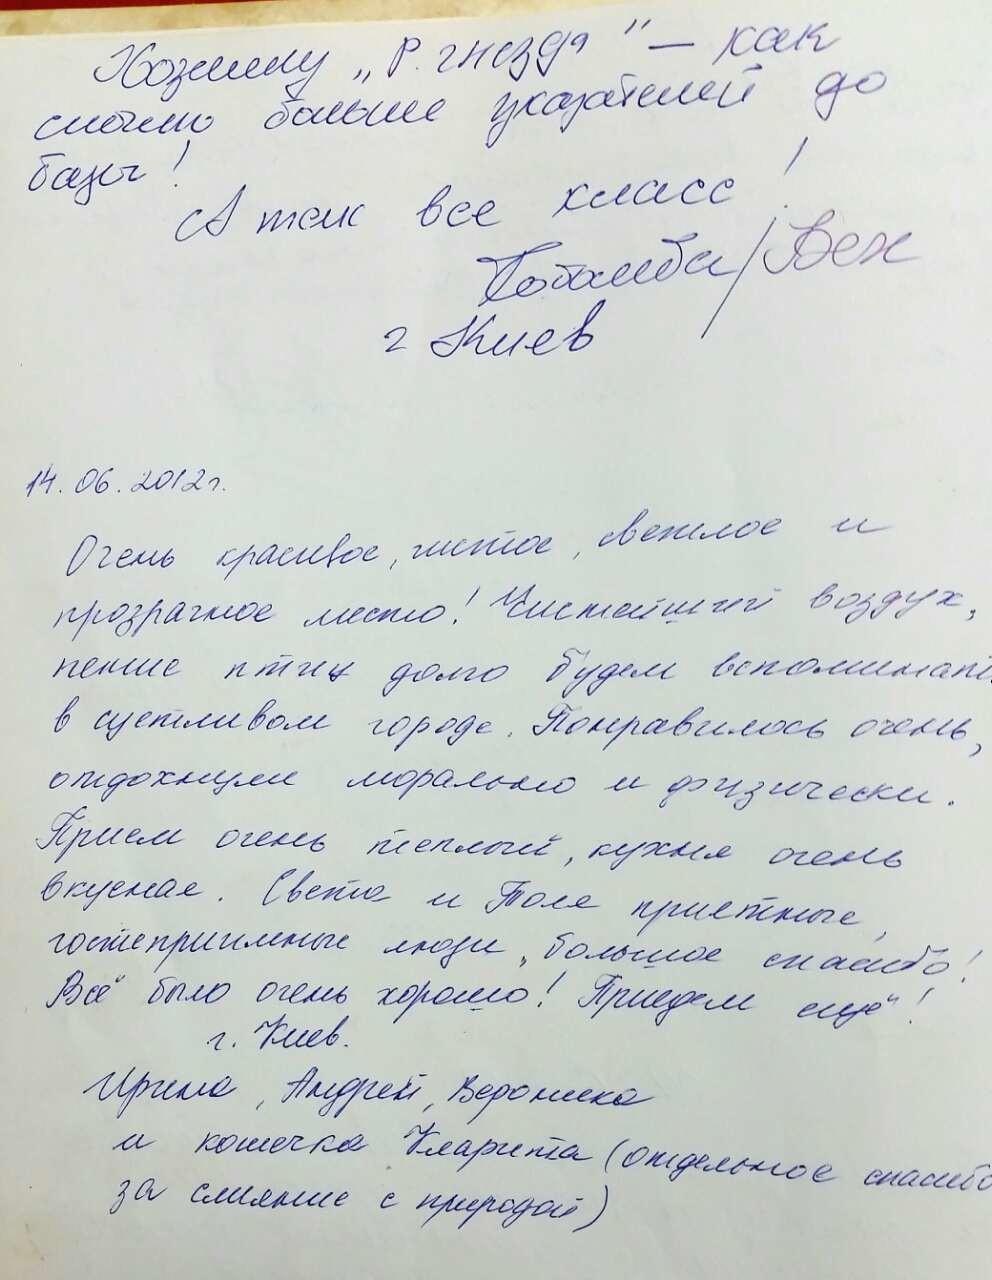 Хозяину „Р. гнезда" – как
можно больше указателей до
базы!
А так все класс!
г Киев
14.06.2012г.
Очень красивое, чистое, светлое и
прозрачное место! Чистейший воздух,
пение птиц долго будем вспоминать
в суетливом городе. Понравилось очень,
отдохнули морально и физически.
Прием очень теплый, кухня очень
вкусная. Света и Толя приятные,
гостеприимные люди, большое спасибо!
Всё было очень хорошо! Приедем ещё!
г. Киев.
Ирина, Андрей, Вероника
и кошечка Кларита (отдельное спасибо
за слияние с природой)